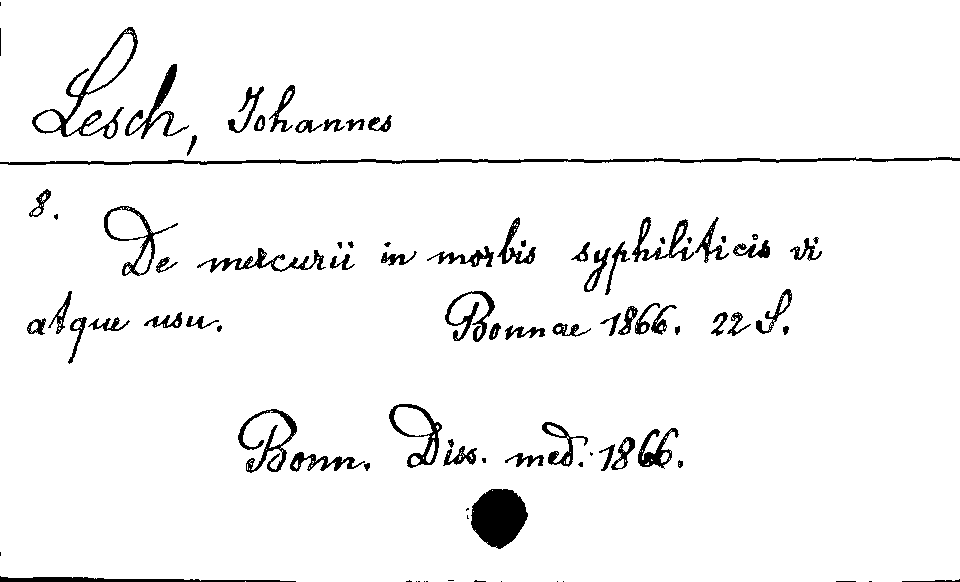 Lesch, Johannes
8.
De mercurii in morbis syphiliticis vi
atque usu. Bonnae 1866. 22 S.
Bonn. Diss. med. 1866.